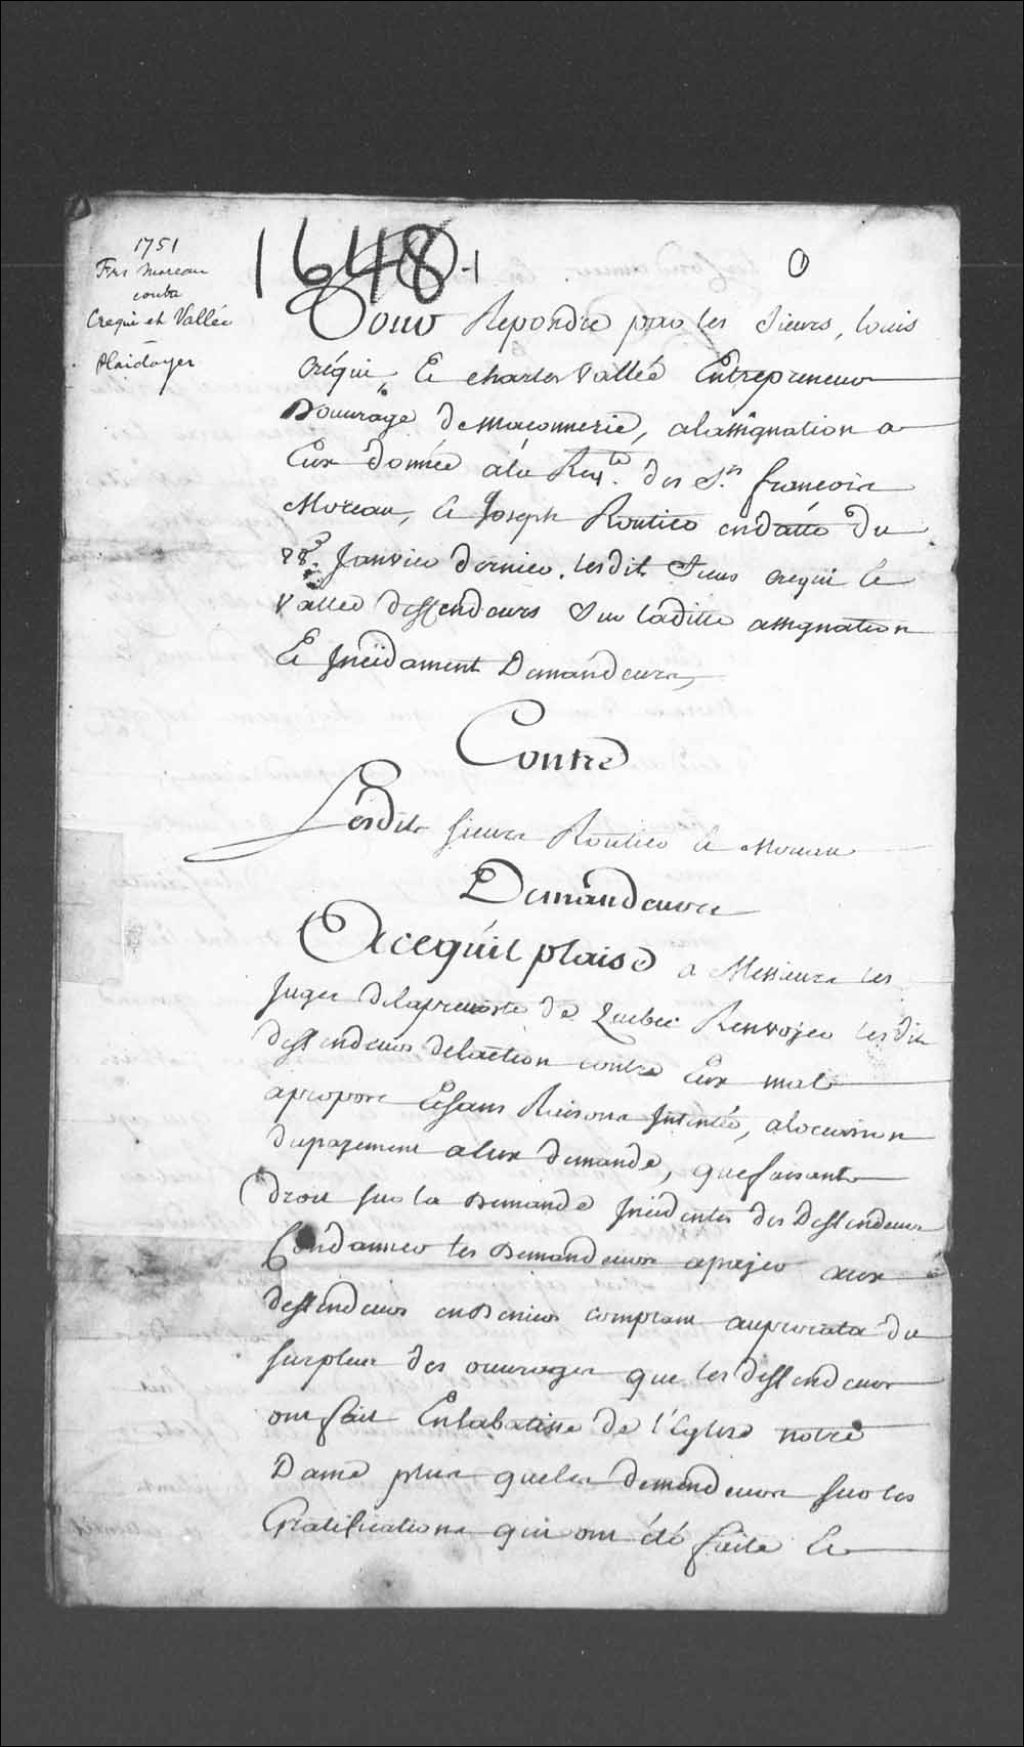 1751
Frs Moreau
contra
Crequi et Vallée
Plaidoyer
1648-1
Pour Repondre par les Sieurs, Louis
Créqui, & charles Vallée Entrepreneur
Douvrage de maconnerie, alassignation a
Eux donnée ala Reqte. des Srs. francois
Moreau, & Joseph Routier en datte du
28e. Janvier dernier. lesdit Sieurs crequi &
Vallée deffendeurs Sur laditte assignation
& Inċidament Demandeurs,
Contre
Lesdits sieurs Routier & Moreau
Demandeurs
Acequil plaise a Messieurs les
Juges delaprevosté de Quebec Renvoyer lesdit
deffendeurs delaction contre Eux mal
apropore & sans Raisons Intentée, alocasion
dupayement aEux demandé, quefaisant
droit sur la demande Incidentes des Deffendeurs
Condamner les Demandeurs apayer aux
deffendeurs en deniers comptant auprorata du
surplus des ouvrages que les deffendeurs
ont fait En la batisse de l'Eglise notre
Dame plus queles demendeurs sur les
Gratifications qui ont été faite &